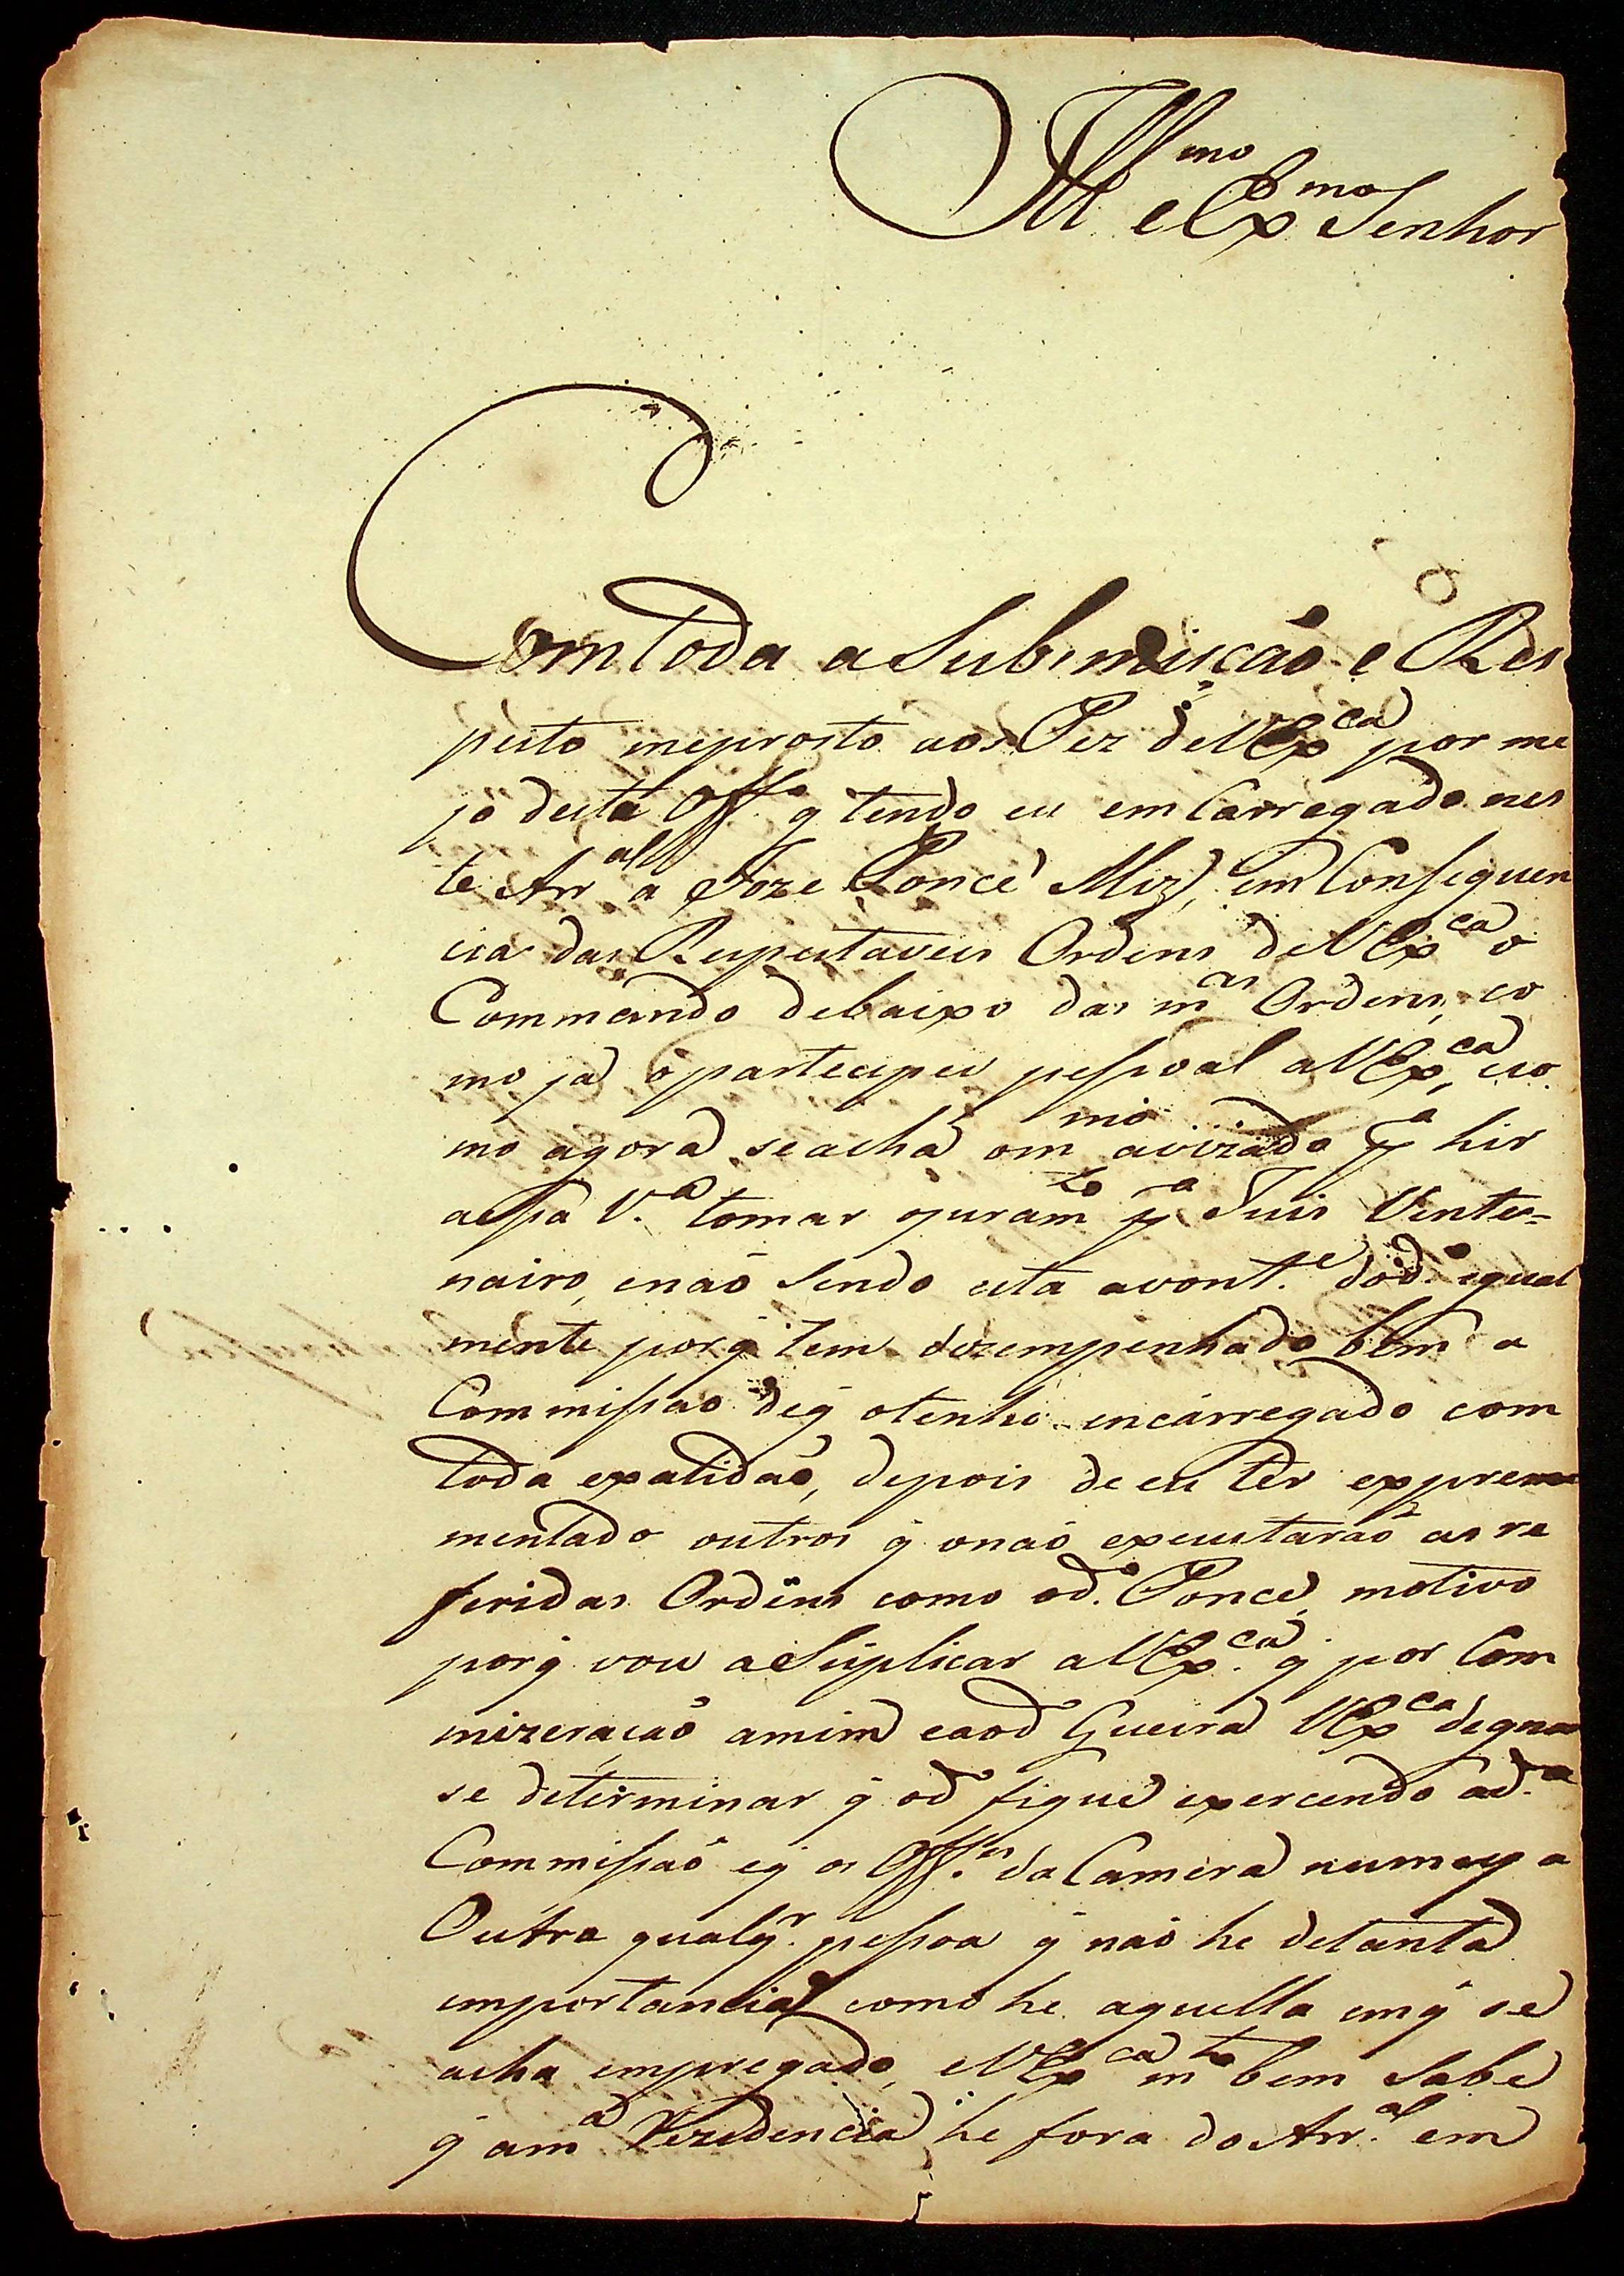 Ill.mo e Ex.mo Senhor
Com toda a Submição e Res
peito meprosto aos Pez deV Ex.ca por me
jo desté Off.o q̃ tendo eu em Carregado nes
te Arr.al a Joze Ponce Miz, em Consequen
cia das Respeitaveis Ordens deV Ex.ca o
Commando debaixo das m.as Ordens, co
mo já o partecipei pessoal aV Ex.ca, eco
mo agora seacha om.mo avizado p.a hir
aessa V.a tomar ojuram.to p.a Juis Vente=
nairo, enão Sendo esta avont.e dod.o igual
mente porq̃ tem dezempenhado bem a
Commissão deq̃ otenho encarregado com
toda exatidão, depois de eu ter expreme
mentado outros q̃ onão executarão as re
feridas Ordens como od.o Ponce, motivo
porq̃ vou aSuplicar aV Ex.ca q̃ por Com
mizeração amim eaod Gueira V Ex.ca degnar
se determinar q̃ od fique exercendo ad.a
Commissão eq̃ os Off.es da Camera numeya
Outra qualq.r pessoa q̃ não he detanta
importancia como he aquella emq̃ se
acha empregado, eV Ex.ca m.to bem Sabe
q̃ am.a Rezedencia he fora do Arr.al em